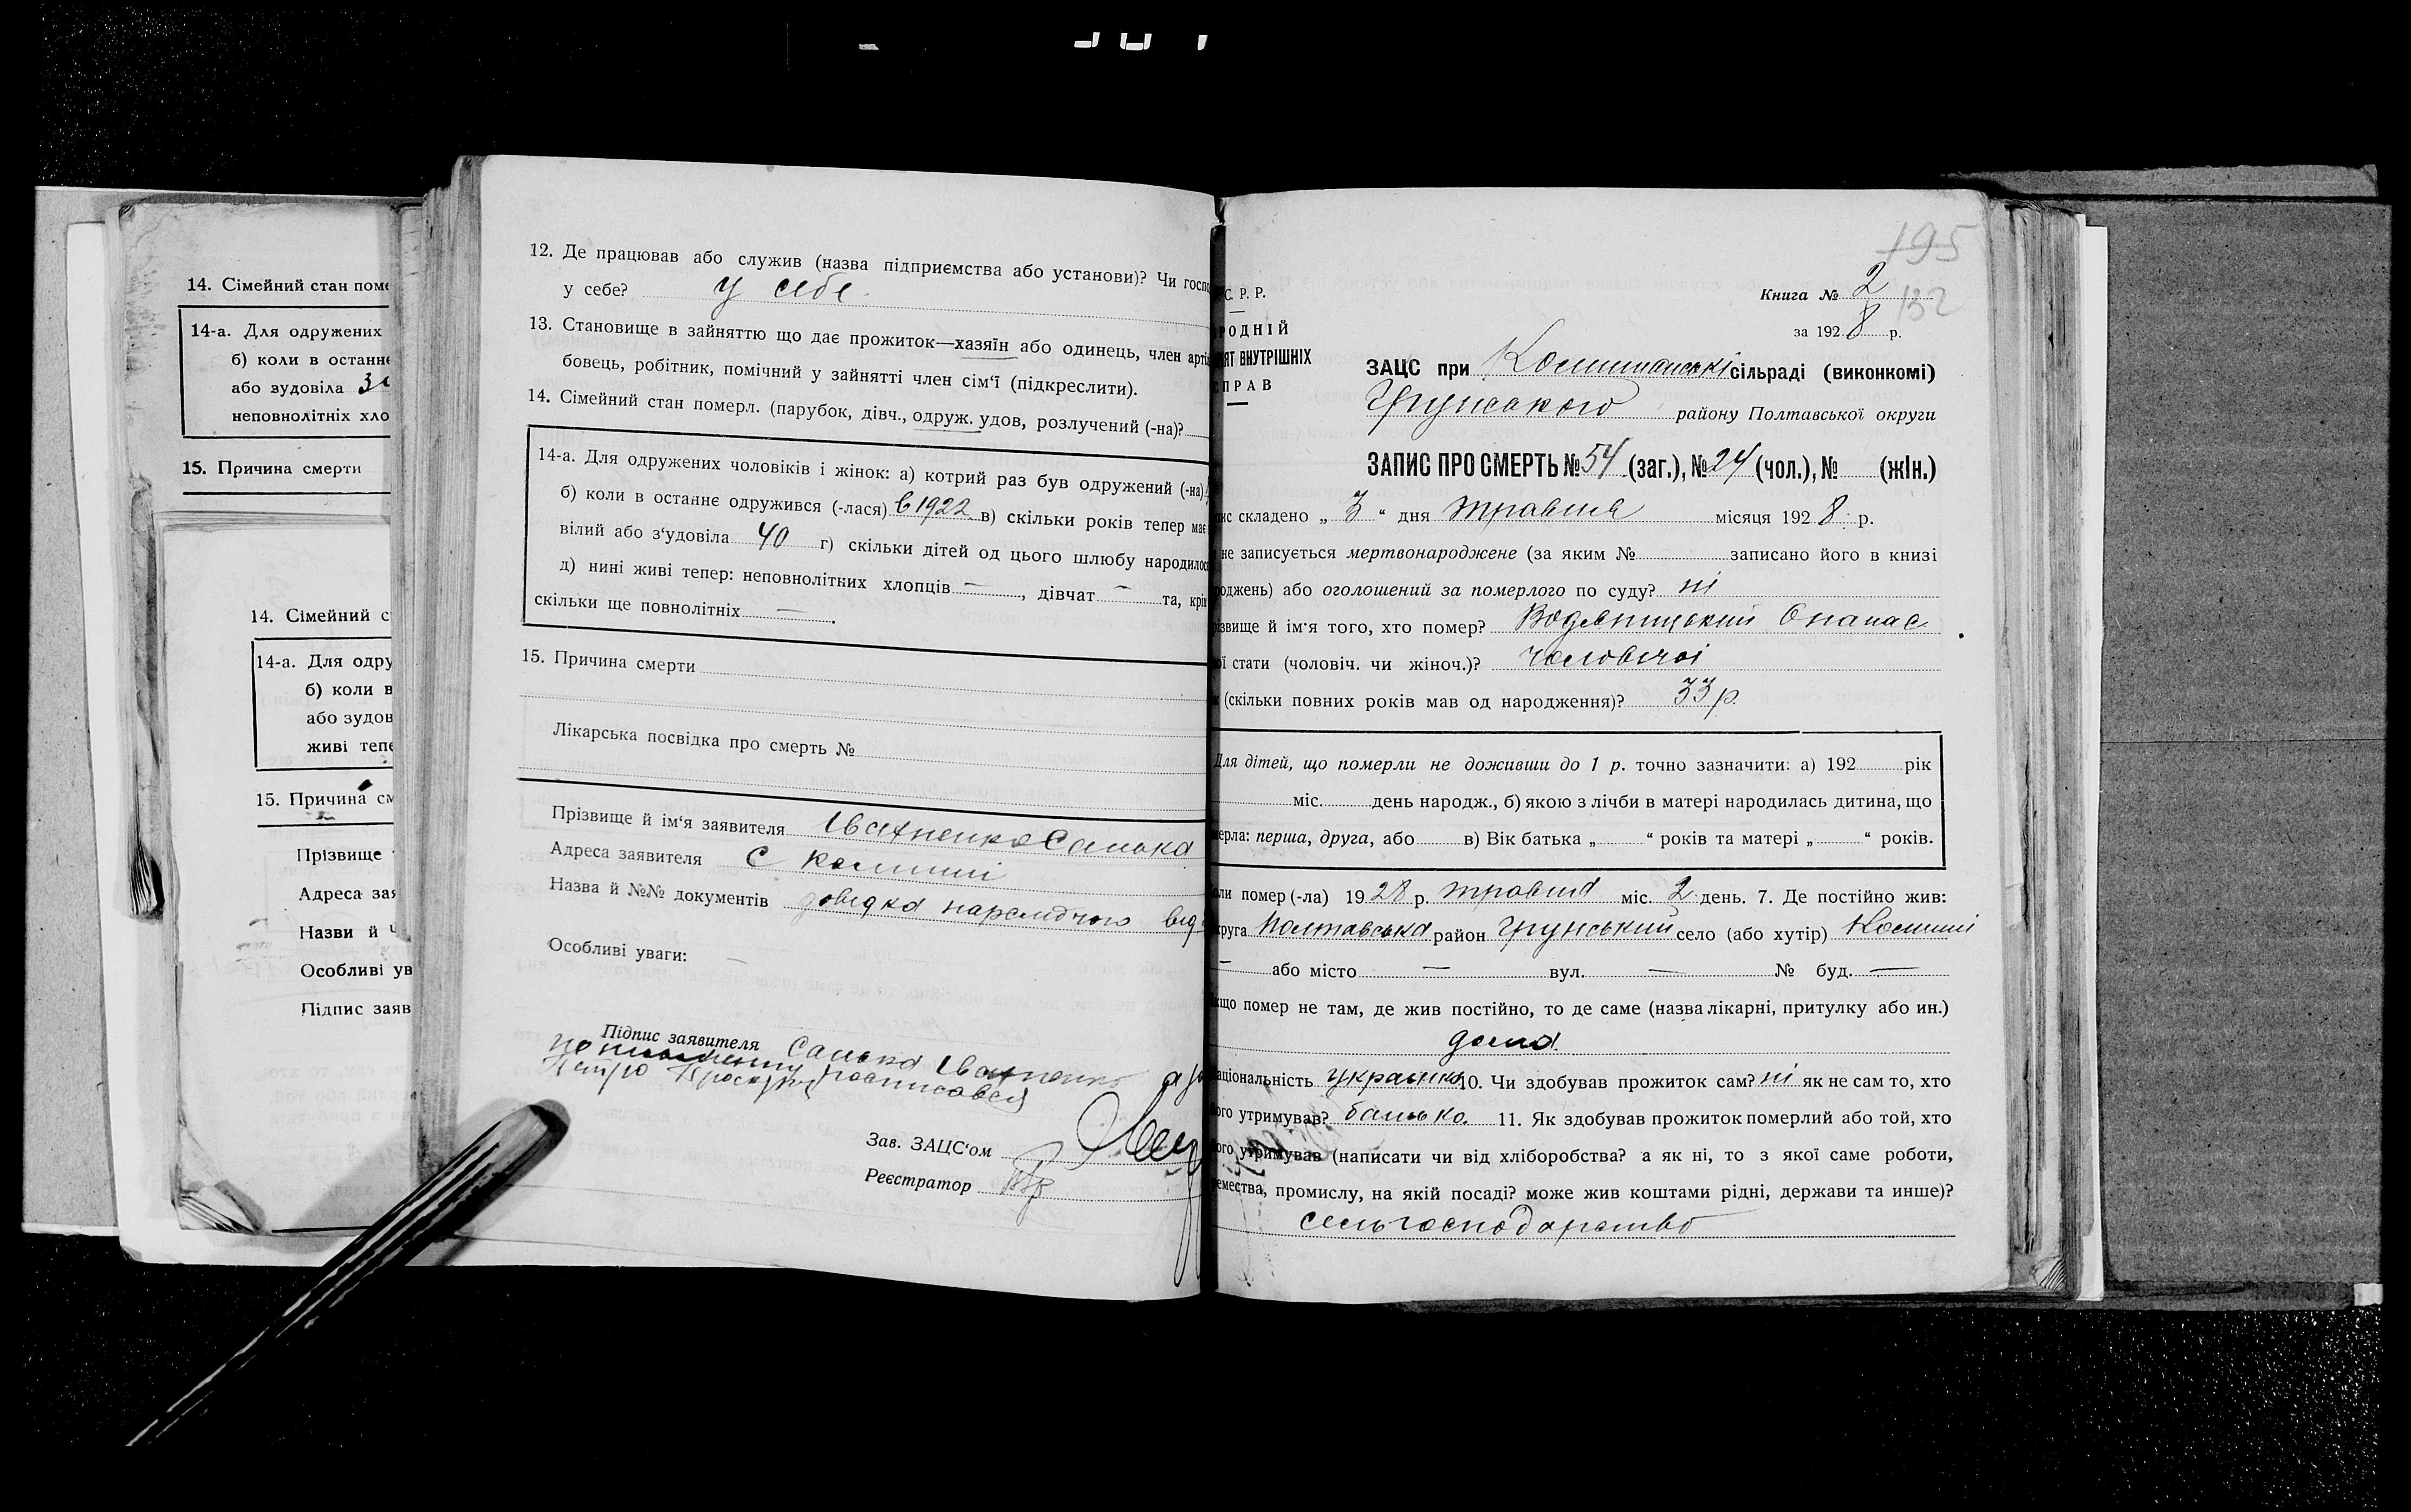 14. Сімейний стан поме
14-а. Для одружених
б) коли в останнє
або зудовіла
неповнолітніх хло
15. Причина смерти
14. Сімейний с
14-а. Для одру
б) коли в
або зудов
живі тепе
15. Причина см
Прізвище
Адреса зая
Назви й
Особливі ув
Підпис заяв
12. Де працював або служив (назва підприємства або установи)? Чи госпо
у себе? у себе
13. Становище в зайняттю що дає прожиток—хазяїн або одинець, член арті
бовець, робітник, помічний у зайнятті член сім'ї (підкреслити).
14. Сімейний стан померл. (парубок, дівч., одруж. удов, розлучений (-на)?
14-а. Для одружених чоловіків і жінок: а) котрий раз був одружений (-на)
б) коли в останнє одружився (-лася) в 1922 в) скільки років тепер має
вілий або з'удовіла 40 г) скільки дітей од цього шлюбу народилос
д) нині живі тепер: неповнолітних хлопців —, дівчат — та, крі
скільки ще повнолітніх —.
15. Причина смерти
Лікарська посвідка про смерть №
Прізвище й ім'я заявителя Івахненко Санька
Адреса заявителя С Комиші
Назва й №№ документів довідка нарслідчого від
Особливі уваги: —
Підпис заявителя Санька Івахненко а
Петро росписався
Зав. ЗАЦС'ом
Реєстратор
195
С. Р. Р.
Книга № 2
132
РОДНІЙ
за 1928 р.
ЯТ ВНУТРІШНІХ
ПРАВ
ЗАЦС при Комишанські сільраді (виконкомі)
Грунського району Полтавської округи
ЗАПИС ПРО СМЕРТЬ № 54 (заг.), № 24 (чол.), № (жін.)
ис складено „ 3 “ дня травня місяця 1928 р.
не записується мертвонароджене (за яким № записано його в книзі
роджень) або оголошений за померлого по суду? ні
ізвище й ім'я того, хто помер? Водяницький Опанас
ої стати (чоловіч. чи жіноч.)? чоловічої
(скільки повних років мав од народження)? 33 р.
Для дітей, що померли не доживши до 1 р. точно зазначити: а) 192 рік
міс. день народж., б) якою з лічби в матері народилась дитина, що
ерла: перша, друга, або в) Вік батька „ “ років та матері „ “ років.
оли помер (-ла) 1928 р. травня міс. 2 день. 7. Де постійно жив:
круга Полтавська район Грунський село (або хутір) Комиші
— або місто — вул. — № буд. —
кщо помер не там, де жив постійно, то де саме (назва лікарні, притулку або ин.)
дома
аціональність українц. 10. Чи здобував прожиток сам? ні як не сам то, хто
ого утримував? батько. 11. Як здобував прожиток померлий або той, хто
ого утримував (написати чи від хліборобства? а як ні, то з якої саме роботи,
емества, промислу, на якій посаді? може жив коштами рідні, держави та инше)?
сельгосподарство